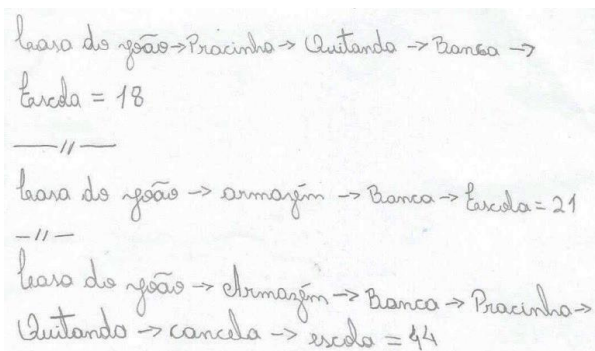 Casa do João → Pracinha → Quitanda → Banca →
Escola = 18
—//—
Casa do João → armazém → Banca → Escola = 21
—//—
Casa do João → Armazém → Banca → Pracinha →
Quitanda → cancela → escola = 44